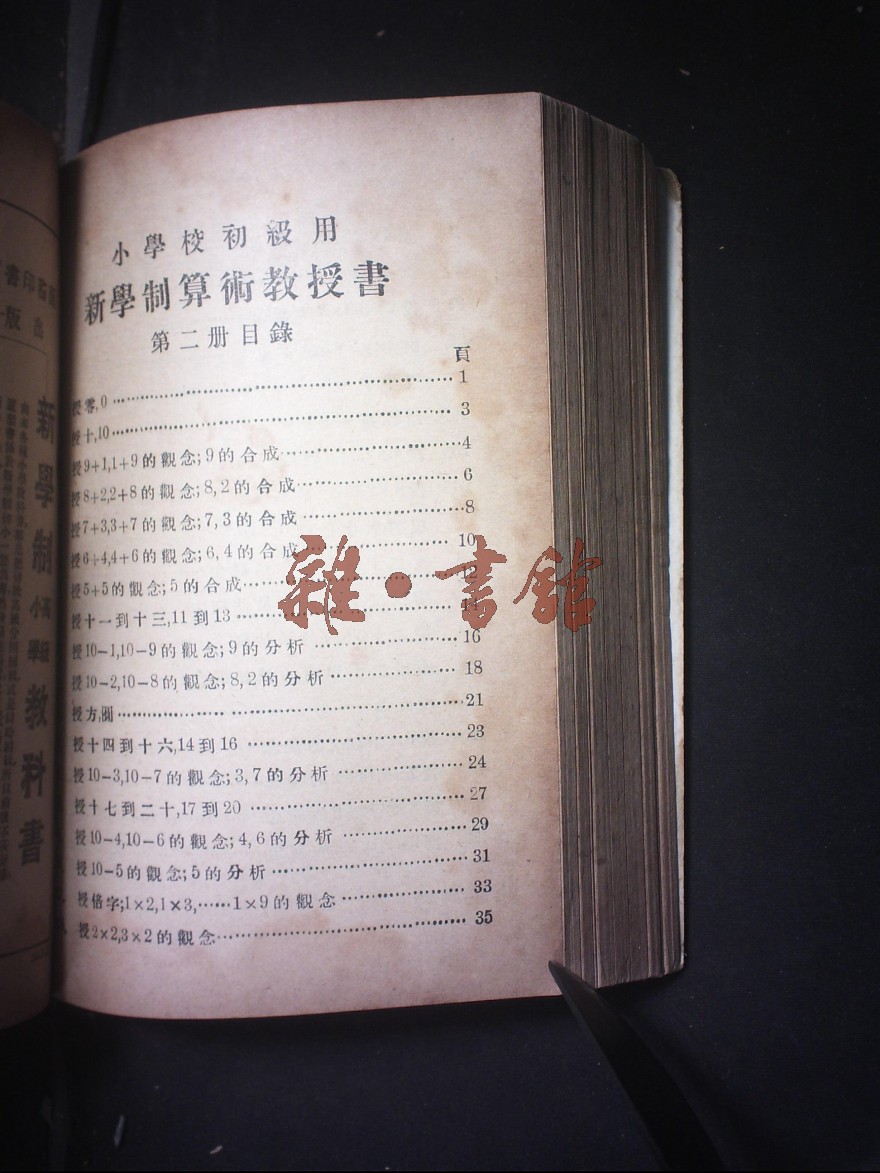 小學校初級用
新學制算術教授書
第二册目錄
頁
授零,0……1
授十,10……3
授9+1,1+9的觀念;9的合成……4
授8+2,2+8的觀念;8,2的合成……6
授7+3,3+7的觀念;7,3的合成……8
授6+4,4+6的觀念;6,4的合成……10
授5+5的觀念;5的合成……12
授十一到十三,11到13……
授10-1,10-9的觀念;9的分析……16
授10-2,10-8的觀念;8,2的分析……18
授方,圓……21
授十四到十六,14到16……23
授10-3,10-7的觀念;3,7的分析……24
授十七到二十,17到20……27
授10-4,10-6的觀念;4,6的分析……29
授10-5的觀念;5的分析……31
授倍字;1×2,1×3,……1×9的觀念……33
授2×2,3×2的觀念……35
雜·書館
新學制
小學
教科書